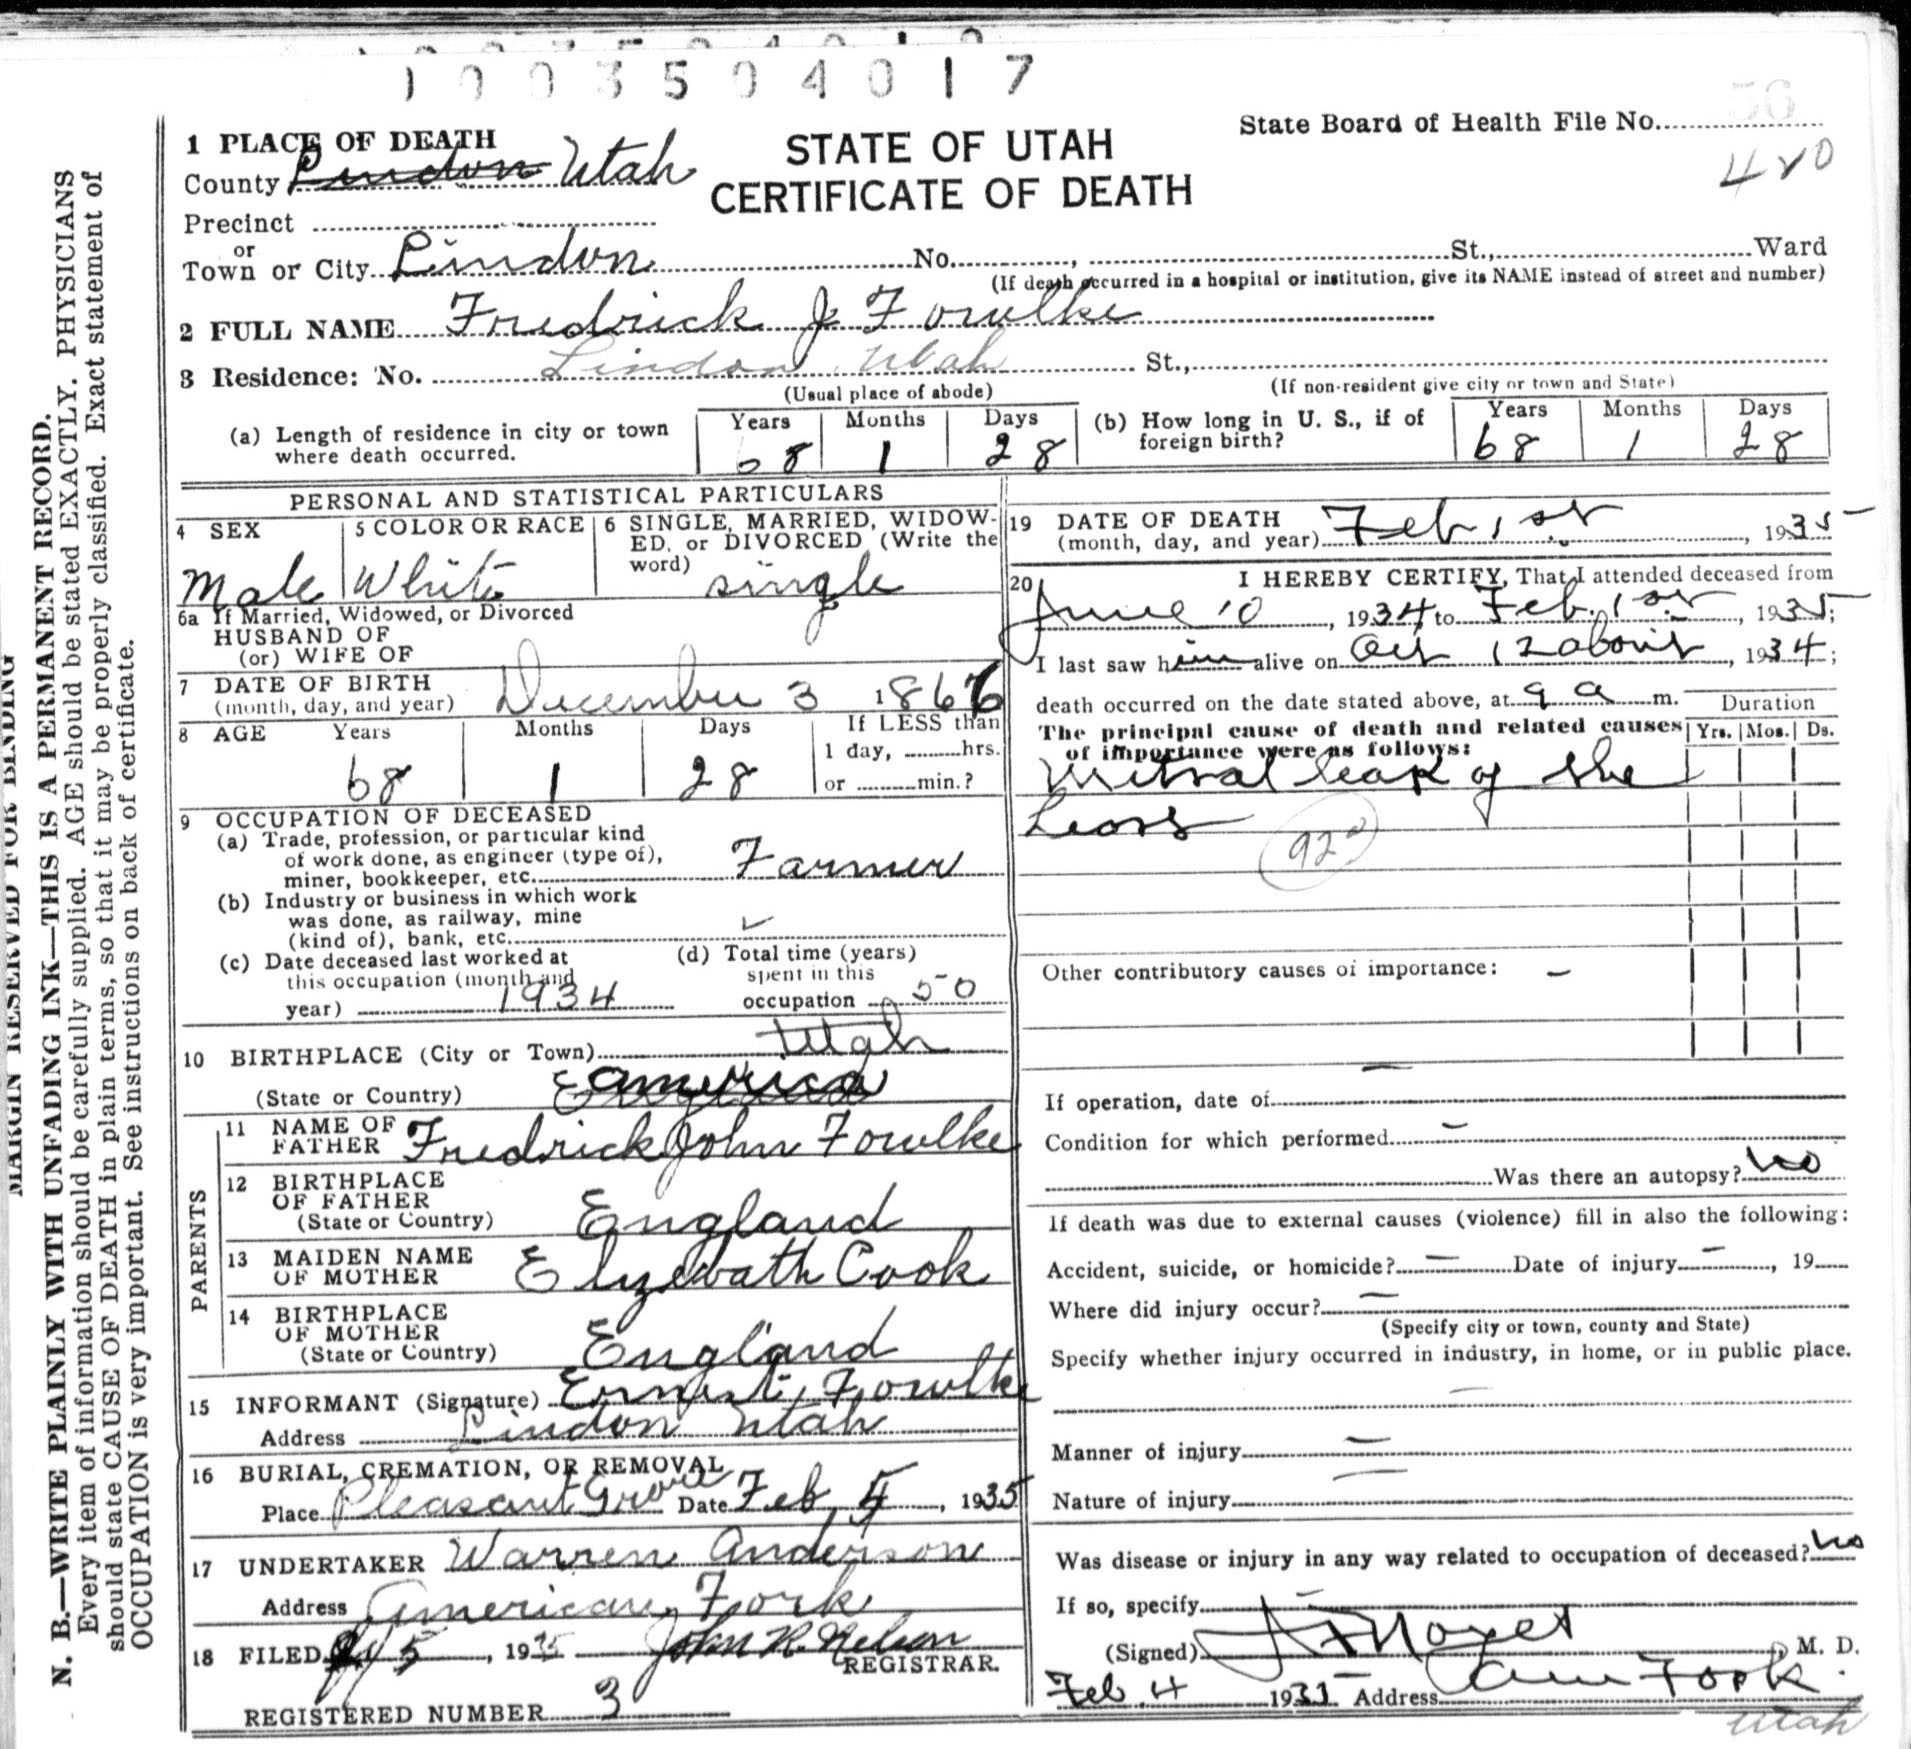 1003504017
56
State Board of Health File No.
420
STATE OF UTAH
CERTIFICATE OF DEATH
1 PLACE OF DEATH
County Lindon Utah
Precinct
or
Town or City Lindon No. , St., Ward
(If death occurred in a hospital or institution, give its NAME instead of street and number)
2 FULL NAME Fredrick J Fowlke
3 Residence: No. Lindon Utah St.,
(Usual place of abode) (If non-resident give city or town and State)
(a) Length of residence in city or town where death occurred. Years 68 Months 1 Days 28
(b) How long in U. S., if of foreign birth? Years 68 Months 1 Days 28
PERSONAL AND STATISTICAL PARTICULARS
4 SEX Male
5 COLOR OR RACE White
6 SINGLE, MARRIED, WIDOWED, or DIVORCED (Write the word) single
6a If Married, Widowed, or Divorced
HUSBAND OF
(or) WIFE OF
7 DATE OF BIRTH
(month, day, and year) December 3 1866
8 AGE Years 68 Months 1 Days 28
If LESS than
1 day, hrs.
or min.?
9 OCCUPATION OF DECEASED
(a) Trade, profession, or particular kind
of work done, as engineer (type of),
miner, bookkeeper, etc. Farmer
(b) Industry or business in which work
was done, as railway, mine
(kind of), bank, etc.
(c) Date deceased last worked at
this occupation (month and
year) 1934
(d) Total time (years)
spent in this
occupation 50
10 BIRTHPLACE (City or Town) Utah
(State or Country) America
PARENTS
11 NAME OF
FATHER Fredrick John Fowlke
12 BIRTHPLACE
OF FATHER
(State or Country) England
13 MAIDEN NAME
OF MOTHER Elyzebath Cook
14 BIRTHPLACE
OF MOTHER
(State or Country) England
15 INFORMANT (Signature) Ernest Fowlke
Address Lindon Utah
16 BURIAL, CREMATION, OR REMOVAL
Place Pleasant Grove Date Feb 4, 1935
17 UNDERTAKER Warren Anderson
Address American Fork
18 FILED 5, 1935 John R. Nelson
REGISTRAR.
REGISTERED NUMBER 3
19 DATE OF DEATH
(month, day, and year) Feb 1st, 1935
20 I HEREBY CERTIFY, That I attended deceased from
June 10, 1934, to Feb. 1st, 1935;
I last saw him alive on Oct 12 about, 1934;
death occurred on the date stated above, at 9 a m.
Duration
The principal cause of death and related causes
of importance were as follows: Yrs. Mos. Ds.
Mitral leak of the
92
Other contributory causes of importance: –
If operation, date of –
Condition for which performed –
Was there an autopsy? No
If death was due to external causes (violence) fill in also the following:
Accident, suicide, or homicide? – Date of injury – , 19
Where did injury occur? –
(Specify city or town, county and State)
Specify whether injury occurred in industry, in home, or in public place.
–
Manner of injury –
Nature of injury –
Was disease or injury in any way related to occupation of deceased? No
If so, specify
(Signed) Noyes, M. D.
Feb 4 1935 Address Am Fork.
Utah
MARGIN RESERVED FOR BINDING
N. B.—WRITE PLAINLY WITH UNFADING INK—THIS IS A PERMANENT RECORD.
Every item of information should be carefully supplied. AGE should be stated EXACTLY. PHYSICIANS
should state CAUSE OF DEATH in plain terms, so that it may be properly classified. Exact statement of
OCCUPATION is very important. See instructions on back of certificate.